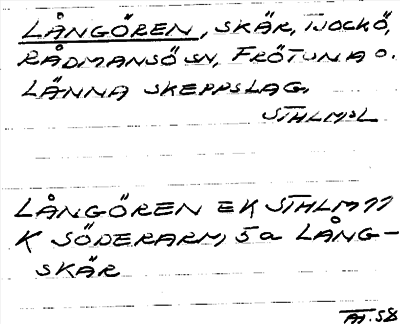 LÅNGÖREN, SKÄR, TJOCKÖ,
RÅDMANSÖ SN, FRÖTUNA O.
LÄNNA SKEPPSLAG.
STHLMSL
LÅNGÖREN EK STHLM 77
K SÖDERARM, 5a LÅNG-
SKÄR
58